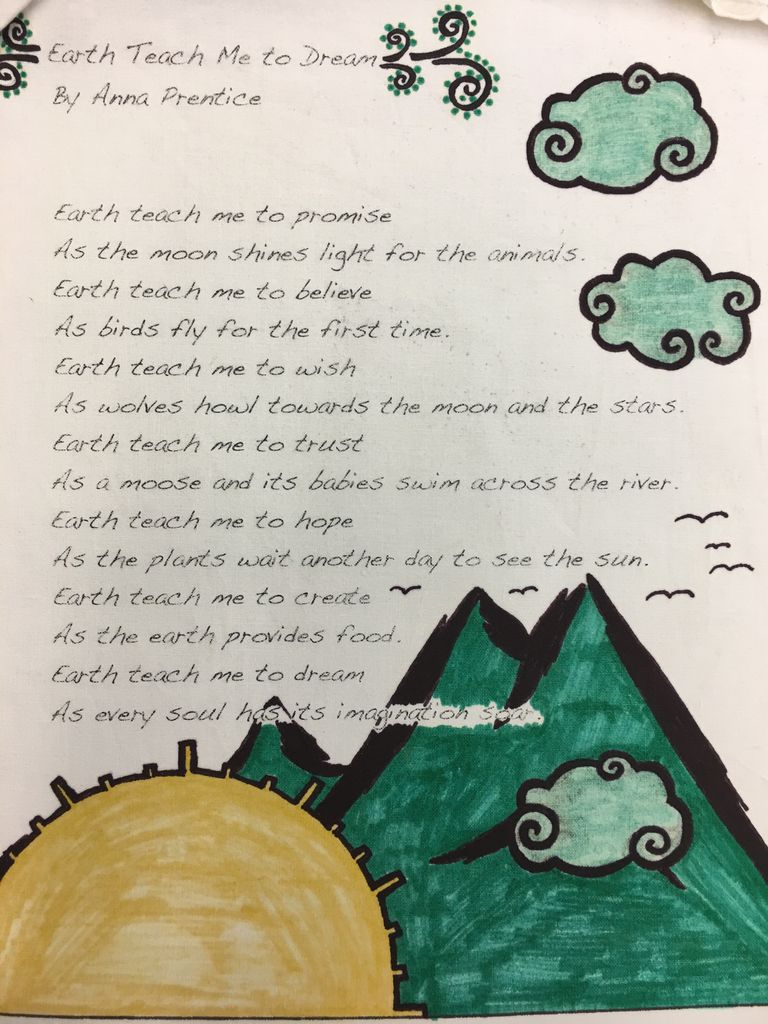 Earth Teach Me to Dream
By Anna Prentice
Earth teach me to promise
As the moon shines light for the animals.
Earth teach me to believe
As birds fly for the first time.
Earth teach me to wish
As wolves howl towards the moon and the stars.
Earth teach me to trust
As a moose and its babies swim across the river.
Earth teach me to hope
As the plants wait another day to see the sun.
Earth teach me to create
As the earth provides food.
Earth teach me to dream
As every soul has its imagination soar.